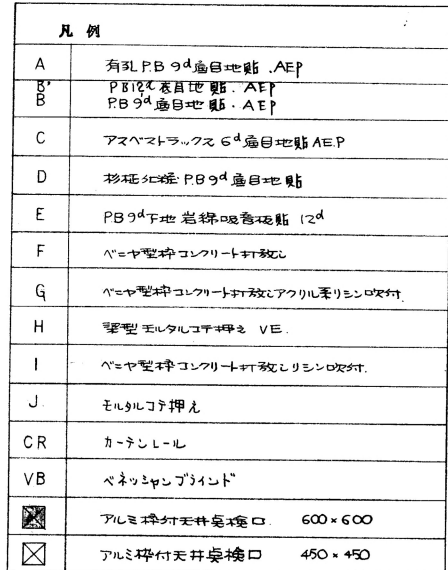 凡 例
A 有孔P.B 9d 目地貼.AEP
B' PB12d 目地貼.AEP
B P.B 9d 目地貼.AEP
C アスベストラックス 6d 目地貼 AE.P
D 杉柾 P.B 9d 目地貼
E P.B 9d下地 岩綿吸音板貼 12d
F ベニヤ型枠コンクリート打放し
G ベニヤ型枠コンクリート打放しアクリル系リシン吹付.
H モルタルコテ押え VE.
I ベニヤ型枠コンクリート打放しリシン吹付.
J. モルタルコテ押え
CR カーテンレール
VB ベネッシャンブラインド
アルミ枠付天井点検口 600×600
アルミ枠付天井点検口 450×450